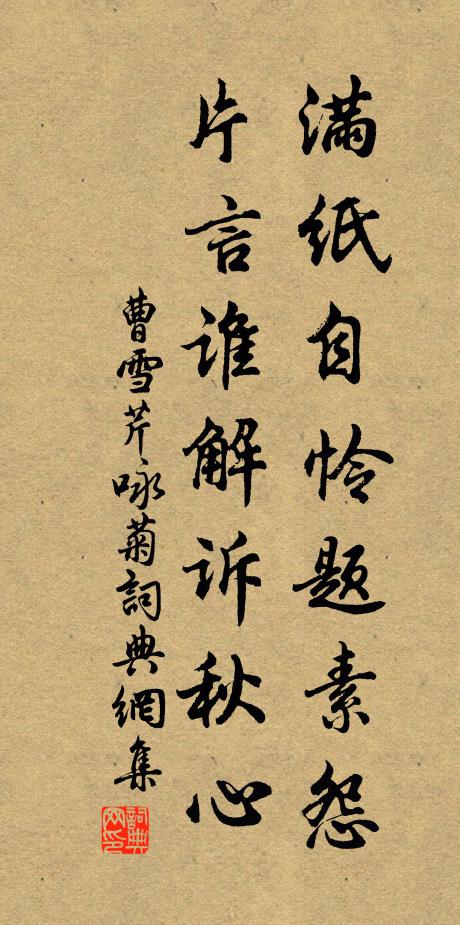 满纸自怜题素怨
片言谁解诉秋心
曹雪芹咏菊詞典網集
詞典网印